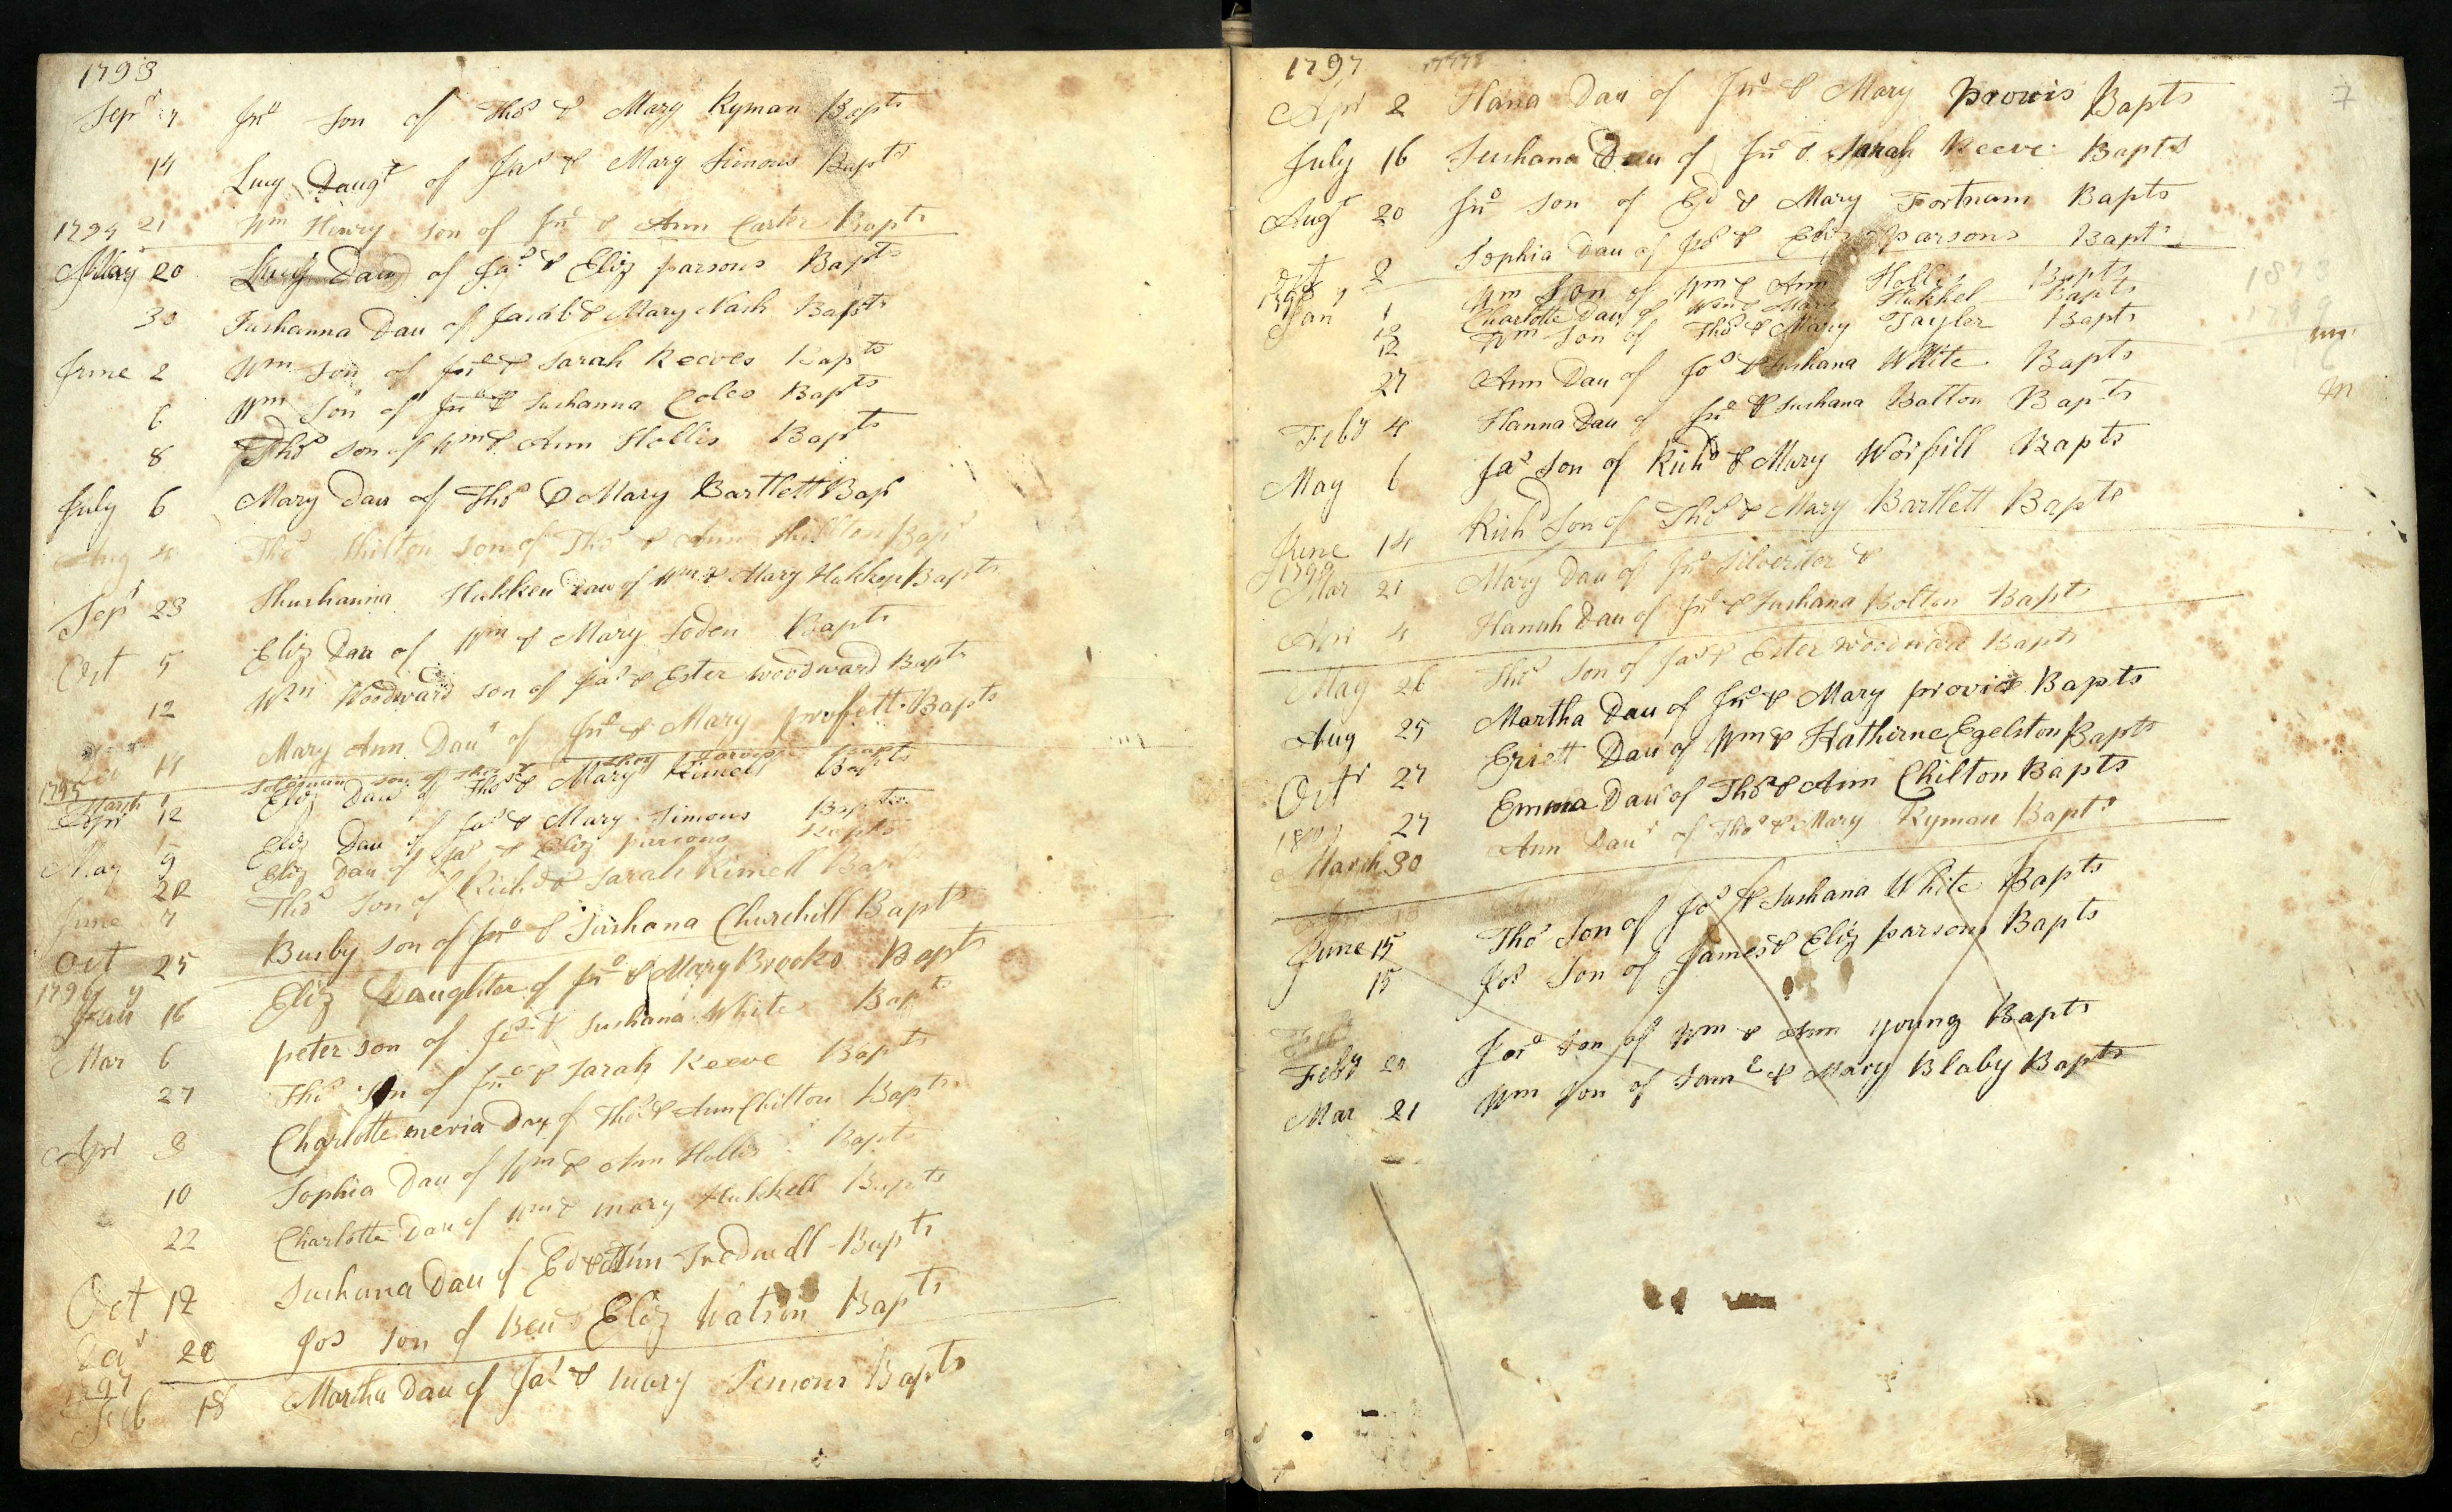 1793
Sepr 7 Jno Son of Thos & Mary Ryman Bapts
14 Lucy Daugt of Jas & Mary Simons Bapts
21 Wm Henry son of Jno & Ann Carter Bapts
1794
May 20 Lucy Dau of Jas & Eliz parsons Bapts
30 Sushanna Dau of Jacob & Mary Nash Bapts
June 2 Wm Son of Jno & Sarah Reeves Bapts
6 Wm Son of Jno & Sushanna Coles Bapts
8 Thos Son of Wm & Ann Hollis Bapts
July 6 Mary Dau of Thos & Mary Bartlett Bap
Aug 4 Thos Shilton Son of Thos & Ann Bap
Sepr 23 Shushanna Dau of Wm & Mary Bapts
Oct 5 Eliz Dau of Wm & Mary Soden Bapts
12 Wm Woodward son of Jas & Ester Woodward Bapts
14 Mary Ann Daur of Jno & Mary proffett Bapts
1795
March son of Bapt
Apr 12 Eliz Daur of Thos & Mary Kimell Bapts
Eliz Dau of Jas & Mary Simons Bapts
May 9 Eliz Dau of Jas & Eliz parsons Bapts
22 Thos Son of Richd & Sarah Kimell Bapt
June 7
Oct 25 Busby son of Jno & Sushana Churchill Bapts
Jan 16 Eliz Daughter of Jno & Mary Brooks Bapt
Mar 6 peter son of Jos & Sushana White Bapts
27 Thos Son of Jno & Sarah Reeve Bapts
Apr 3 Charlotte meria Dau of Thos & Ann Chilton Bapts
10 Sophia Dau of Wm & Ann Hollis Bapts
22 Charlotte Dau of Wm & Mary Hukkell Bapts
Oct 12 Sushana Dau of Ed & Ann Tredwell Bapts
20 Jos son of Ben & Eliz Watson Bapts
1797
Feb 18 Martha Dau of Jas & Mary Simons Bapts
1797
7
Apr 2 Hana Dau of Jno & Mary Provis Bapts
July 16 Sushana Dau of Jno & Sarah Reeve Bapts
Augt 20 Jno Son of Ed & Mary Fortnam Bapts
Oct 2 Sophia Dau of Jas & Eliz parsons Bapts
1798
Jan 1 Wm Son of Wm & Ann Hollis Bapts
12 Charlotte Dau of Wm & Mary Hukkel Bapts
12 Wm Son of Thos & Mary Tayler Bapts
27 Ann Dau of Jos & Sushana White Bapts
Feby 4 Hanna Dau of Jno & Sushana Botton Bapts
May 6 Jas Son of Richd & Mary Worfill Bapts
June 14 Richd Son of Thos & Mary Bartlett Bapts
1799
Mar 21 Mary Dau of Jno Silverter &
Apr 4 Hannah Dau of Jno & Sushana Bolton Bapts
May 26 Thos Son of Jas & Ester Woodward Bapts
Aug 25 Martha Dau of Jno & Mary provis Bapts
Octr 27 Eriett Dau of Wm & Katherine Egelston Bapts
27 Emma Dau of Thos & Ann Chilton Bapts
March 30 Ann Daur of Thos & Mary Ryman Bapts
June 15 Thos Son of Jos & Sushana White Bapts
15 Jos Son of James & Eliz parsons Bapts
Feb
Feby 20 Son of Wm & Ann Young Bapts
Mar 21 Wm Son of Saml & Mary Blaby Bapts